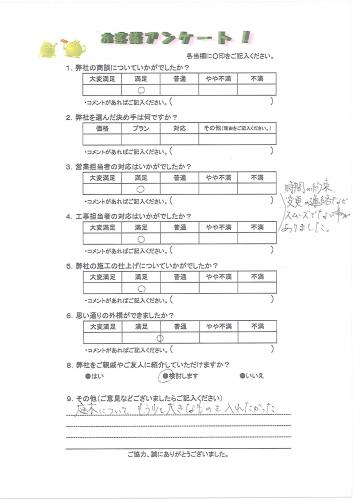 お客様アンケート！
各当欄に〇印をご記入ください。
1. 弊社の商談についていかがでしたか？
大変満足 満足 普通 やや不満 不満
〇
・コメントがあればご記入ください。( )
2. 弊社を選んだ決め手は何ですか？
価格 プラン 対応 その他（理由をご記入ください。）
〇
・コメントがあればご記入ください。( )
3. 営業担当者の対応はいかがでしたか？
大変満足 満足 普通 やや不満 不満
〇
・コメントがあればご記入ください。( )
時間の約束
変更の連絡など
スムーズでない事が
ありました。
4. 工事担当者の対応はいかがでしたか？
大変満足 満足 普通 やや不満 不満
〇
・コメントがあればご記入ください。( )
5. 弊社の施工の仕上げについていかがでしたか？
大変満足 満足 普通 やや不満 不満
〇
・コメントがあればご記入ください。( )
6. 思い通りの外構ができましたか？
大変満足 満足 普通 やや不満 不満
〇
・コメントがあればご記入ください。( )
8. 弊社をご親戚やご友人に紹介していただけますか？
●はい ●検討します ●いいえ
9. その他（ご意見などございましたらご記入ください）
庭木について もう少し大きなものを入れたかった
ご協力、誠にありがとうございました。